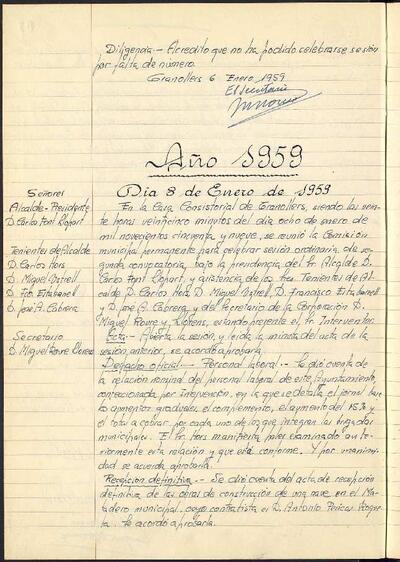 Diligencia.- Acredito que no ha podido celebrarse sesión
por falta de número.
Granollers 6 Enero 1959
El secretario
Año 1959
Día 8 de Enero de 1959
Señores
Alcalde-Presidente
D. Carlos Font Llopart
Tenientes de Alcalde
D. Carlos Hors
D. Miguel Distrell
D. Fco Estabanell
D. José A. Cabrera
Secretario
D. Miguel Roure Llorens
En la Casa Consistorial de Granollers, siendo las vein
te horas veinticinco minutos del dia ocho de enero de
mil novecientos cincuenta y nueve, se reunió la Comisión
municipal permanente para celebrar sesión ordinaria, de se-
gunda convocatoria, bajo la presidencia del Sr. Alcalde D.
Carlos Font Llopart, y asistencia de los tres Tenientes de Al-
calde D. Carlos Hors, D. Miguel Distrell, D. Francisco Estabanell
y D. José A. Cabrera, y del Secretario de la Corporación D.
Miguel Roure y Llorens, estando presente el Sr. Interventor.
Acta.- Abierta la sesión, y leida la minuta del acta de
la sesión anterior, se acordó aprobarla.
Despacho oficial.- Personal laboral.- Se dió cuenta de
la relación nominal del personal laboral de este Ayuntamiento,
confeccionada por Intervención, en la que se detalla el jornal base
los aumentos graduales, el complemento, el aumento del 15% y
el total a cobrar por cada uno de los que integran las brigadas
municipales. El Sr. Hors manifiesta haber examinado an te-
riormente esta relación y que está conforme. Y por unanimi-
dad se acuerda aprobarla.
Recepción definitiva.- Se dió cuenta del acta de recepción
definitiva de las obras de construcción de una nave en el Ma-
tadero municipal, cuyo contratista es D. Antonio Pericas
Se acordó aprobarla.